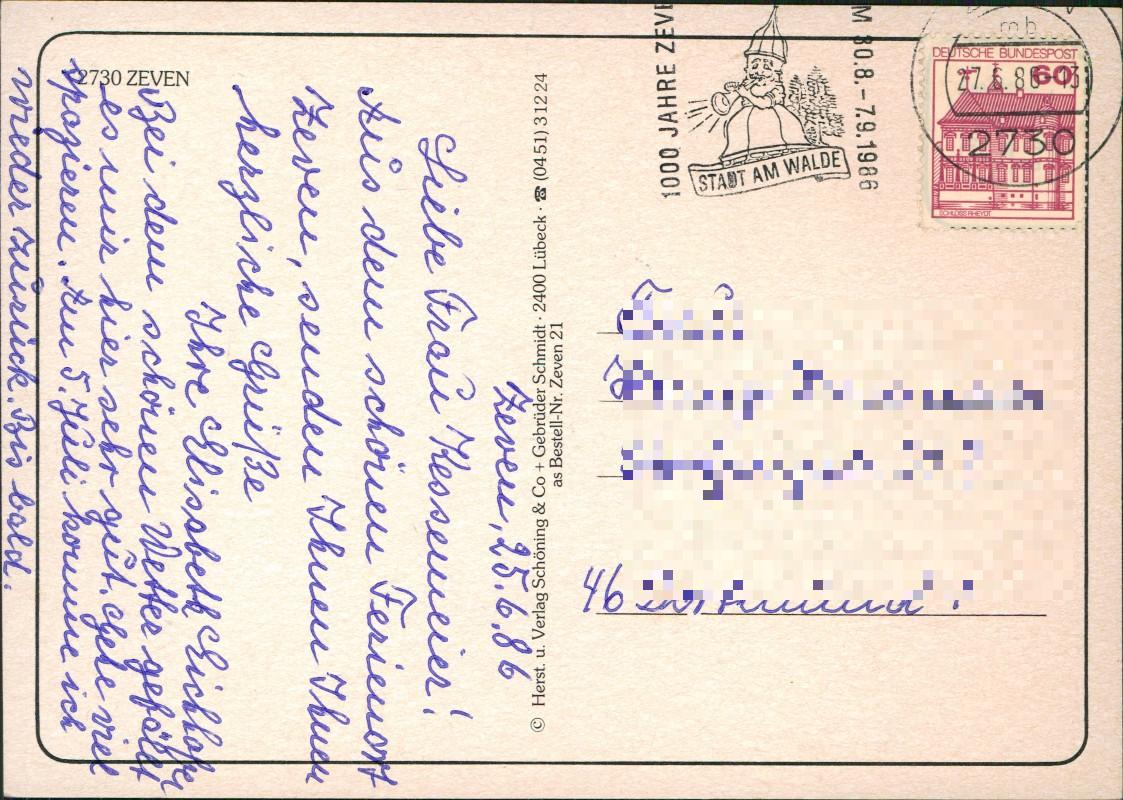 2730 ZEVEN
Zeven, 25.6.86
Liebe Frau Kessemeier!
Aus dem schönen Ferienort
Zeven, senden Ihnen Ihnen
herzliche Grüße
Ihre Elisabeth Eickhoff
Bei dem schönen Wetter gefällt
es mir hier sehr gut. Gehe viel
spazieren. Am 5. Juli komme ich
wieder zurück. Bis bald.
© Herst. u. Verlag Schöning & Co + Gebrüder Schmidt · 2400 Lübeck · ☎ (04 51) 3 12 24
as Bestell-Nr. Zeven 21
1000 JAHRE ZEVE
STADT AM WALDE
M 30.8.–7.9.1986
mb
27.6.86-13
2730
DEUTSCHE BUNDESPOST
60
SCHLOSS RHEYDT
46